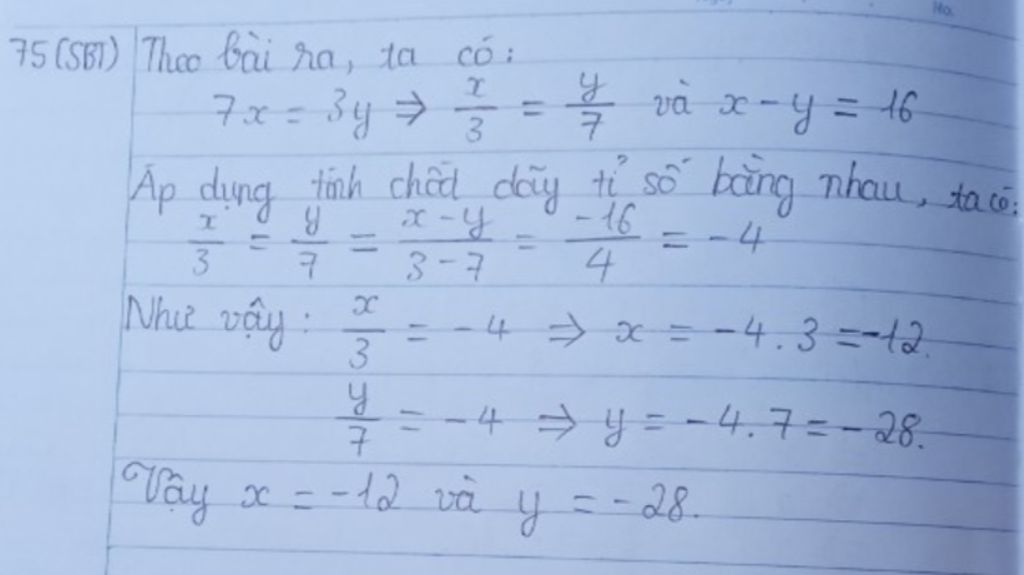 75 (SBT) Theo bài ra, ta có:
7x = 3y ⇒ x/3 = y/7 và x - y = 16
Áp dụng tính chất dãy tỉ số bằng nhau, ta có:
x/3 = y/7 = (x - y)/(3 - 7) = -16/4 = -4
Như vậy: x/3 = -4 ⇒ x = -4.3 = -12.
y/7 = -4 ⇒ y = -4.7 = -28.
Vậy x = -12 và y = -28.